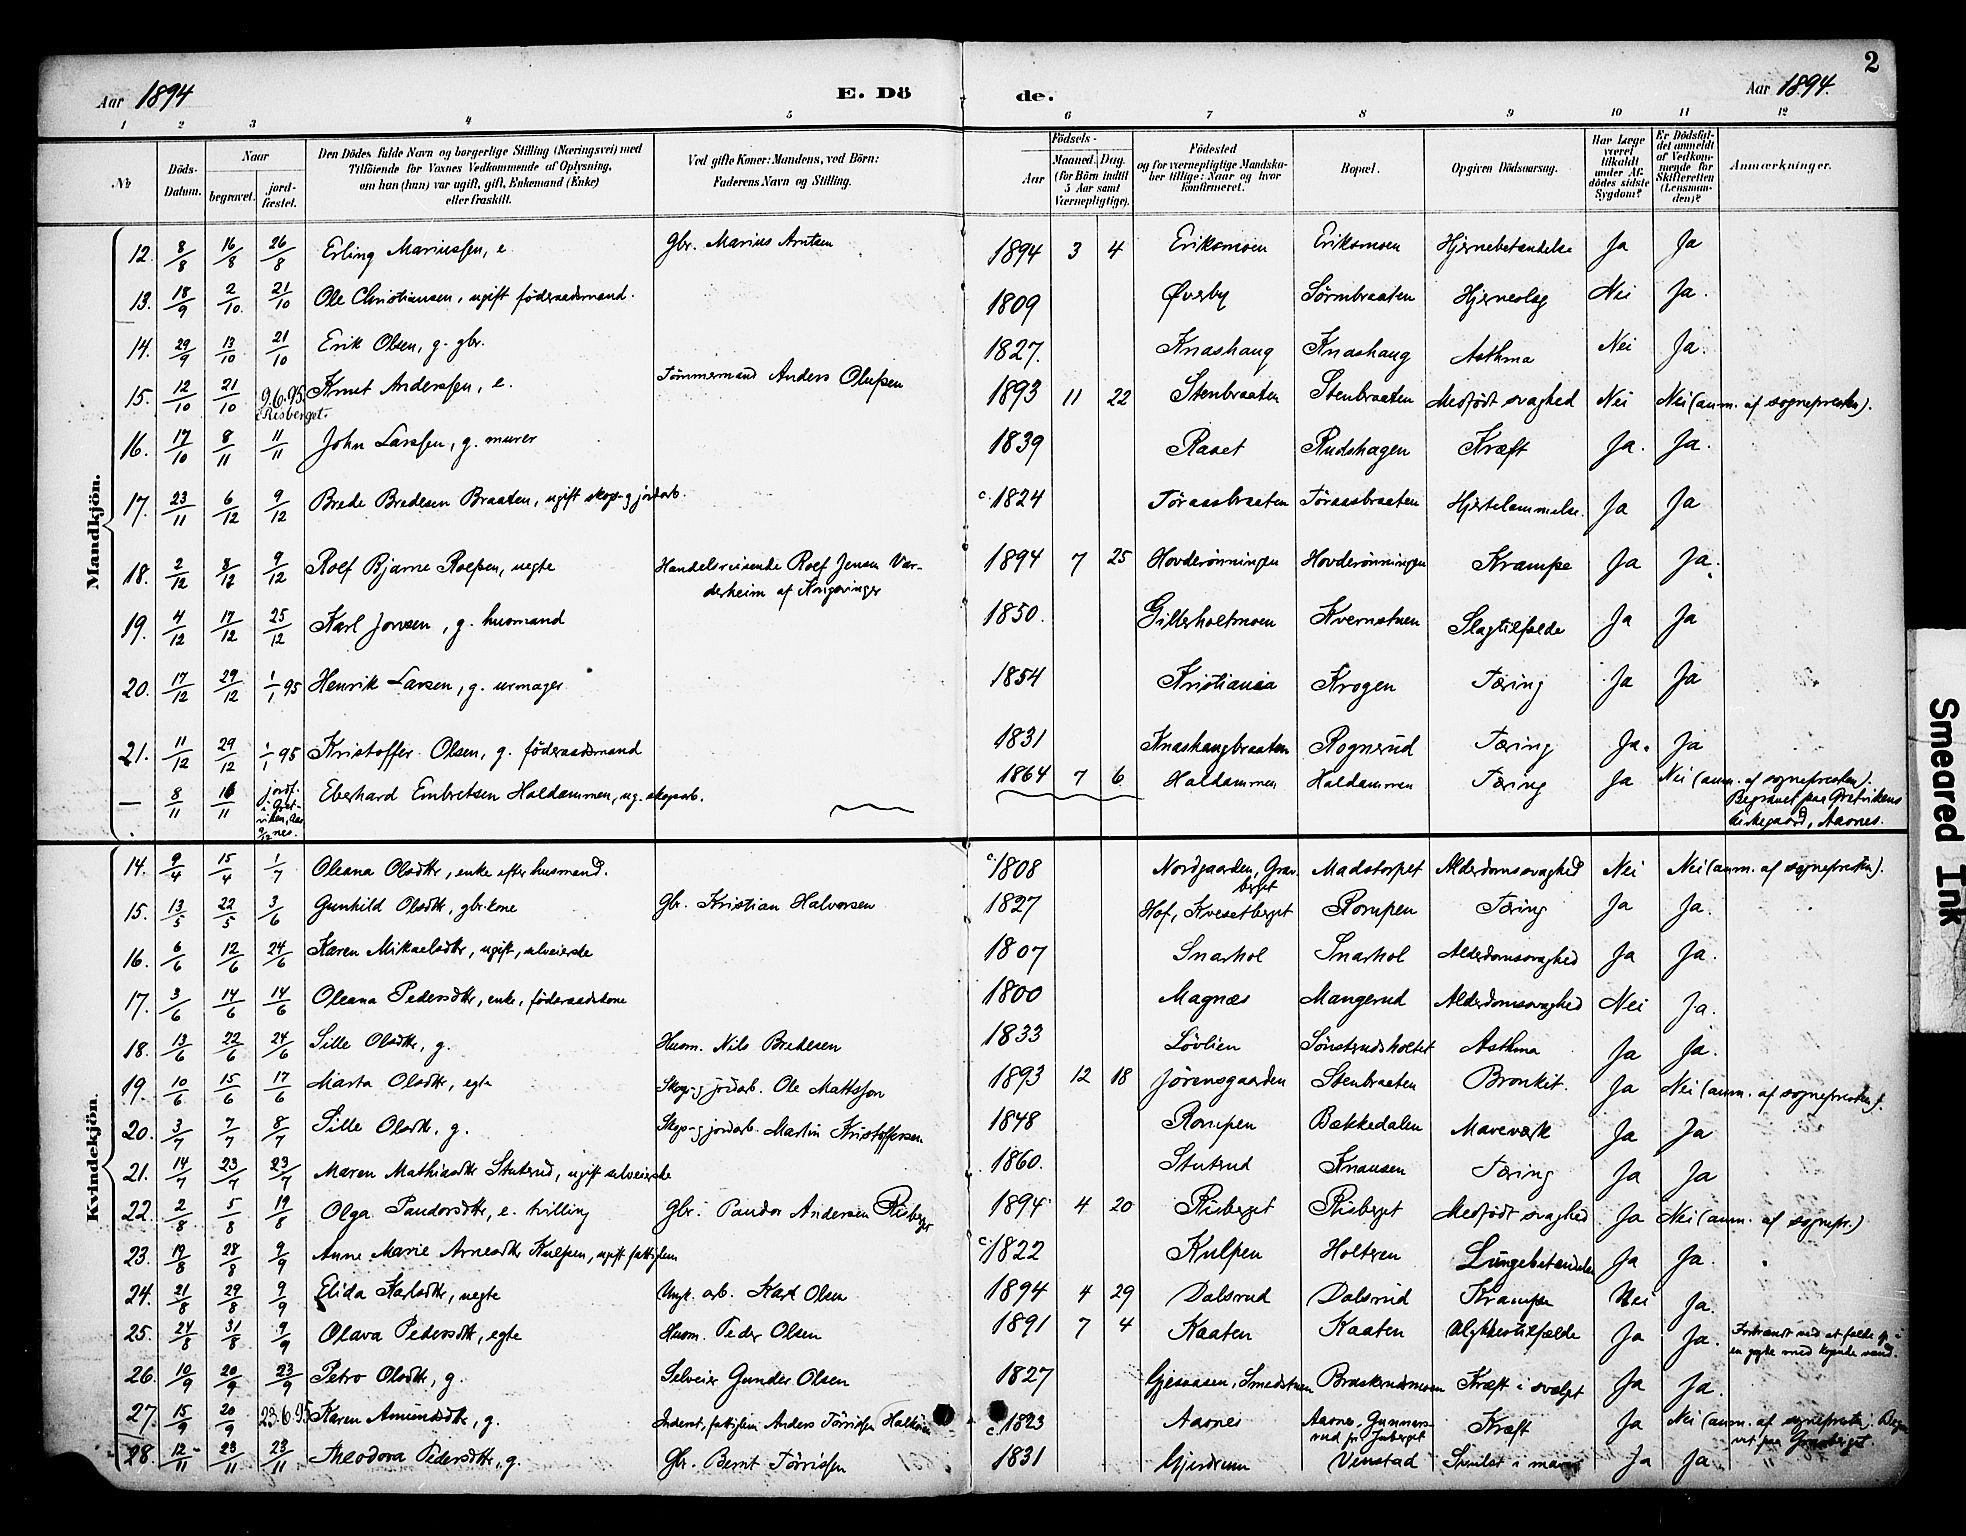 2
Aar 1894
E. Dö de.
Aar 1894.
1 2 3 4 5 6 7 8 9 10 11 12
No
Döds-Datum.
Naar begravet. jordfæstet.
Den Dödes fulde Navn og borgerlige Stilling (Næringsvei) med Tilföiende for Voxnes Vedkommende af Oplysning, om han (hun) var ugift, gift, Enkemand (Enke) eller fraskilt.
Ved gifte Koner: Mandens, ved Börn: Faderens Navn og Stilling.
Födsels- Aar Maaned. Dag. (for Börn indtil 5 Aar samt Værnepligtige).
Födested og for værnepligtige Mandskaber tillige: Naar og hvor konfirmeret.
Bopæl.
Opgiven Dödsaarsag.
Har Læge været tilkaldt under Afdödes sidste Sygdom?
Er Dödsfaldet anmeldt af Vedkommende for Skifteretten (Lensmanden)?
Anmærkninger.
Mandkjön.
12. 8/8 16/8 26/8 Erling Mariussen, e. Gbr. Marius Arntsen 1894 3 4 Eriksmoen Eriksmoen Hjernebetændelse Ja Ja
13. 18/9 2/10. 21/10 Ole Christiansen, ugift föderaadsmand. 1809 Øverby Sörmbraaten Hjerneslag Nei Ja.
14. 29/9 13/10 21/10 Erik Olsen, g. gbr. 1827. Knashaug Knashaug Asthma Nei Ja.
15. 12/10 21/10 9.6.95. Risberget. Knut Anderssen, e. Tömmermand Anders Olufsen 1893 11 22 Stenbraaten Stenbraaten Medfödt svaghed Nei Nei (anm. af sognepresten).
16. 17/10 8/11 11/11 John Larssen, g. murer 1839 Raaet Rudshagen Kræft Ja. Ja.
17. 23/11 6/12 9/12 Brede Bredesen Braaten, ugift skogs- og jordarb. c. 1824 Töraasbraaten Töraasbraaten Hjertelammelse. Ja Ja
18. 2/12 8/12 9/12 Rolf Bjarne Rolfsen, uegte Handelsreisende Rolf Jensen Varderheim af Kongsvinger 1894 7 25 Hovderönningen Hovderönningen Krampe Ja Ja.
19. 4/12 17/12 25/12 Karl Jonsen, g. husmand 1850. Gitterholtmoen Kvernstuen Slagtilfælde Ja Ja
20. 17/12 29/12 1/1 95 Henrik Larsen, g. urmager 1854 Kristiania Krogen Tæring Ja Ja
21. 11/12 29/12 1/1 95 Kristoffer Olsen, g. föderaadsmand 1831 Knashaugbraaten Rognerud Tæring Ja. Ja
— 8/11 16/11 jordf. Eberhard Embretsen Haldammen, ug. skogsarb. 1864 7 6. Haldammen Haldammen Tæring Ja Nei (anm. af sognepresten). Begravet paa Gretvikens kirkegaard, Aasnes.
Kvindekjön.
14. 9/4 15/4 1/7 Oleana Olsdtr, enke efter husmand. c. 1808 Nordgaarden, Gravberget Madstorpet Alderdomssvaghed Nei Nei (anm. af sognepresten).
15. 13/5 22/5 3/6 Gunhild Olsdtr, gbr.kone Gbr. Kristian Halvorsen 1827 Hof, Kvesetberget Rompen Tæring Ja Ja.
16. 6/6 12/6 24/6 Karen Mikaelsdtr, ugift, selveierske 1807 Snarhol Snarhol Alderdomssvaghed Ja Ja.
17. 3/6 14/6 14/6 Oleana Pedersdtr, enke, föderaadskone 1800 Magnæs Mangerud Alderdomssvaghed Nei Ja.
18. 13/6 22/6 24/6 Sille Olsdtr, g. Husm. Nils Bredesen 1833 Lövlien Sönstrudsholtet Asthma Ja Ja.
19. 10/6 15/6 17/6 Marta Olsdtr, egte Skogs- og jordarb. Ole Mattsson 1893 12 18 Jörensgaarden Stenbraaten Bronkit. Ja Nei (anm. af sognepresten).
20. 3/7 7/7 8/7 Sille Olsdtr, g. Skogs- og jordarb. Martin Kristoffersen 1848 Rompen Bækkedalen Maveværk Ja Ja
21. 14/7 23/7 23/7 Maren Mathiasdtr Stutrud, ugift selveierske 1860. Stutrud Knausen Tæring Ja Ja
22. 2/8 5/8 19/8 Olga Pandorsdtr, e. tvilling Gbr. Pandor Andersen Risberget 1894 4 20 Risberget Risberget Medfödt svaghed Ja Nei (anm. af sognepr.)
23. 19/8 28/8 9/9 Anne Marie Arnesdtr Kulpen, ugift fattiglem c. 1822 Kulpen Holtren Lungebetændelse Ja Ja.
24. 21/8 29/8 9/9 Elida Karlsdtr, uegte Ungk. arb. Karl Olsen 1894 4 29 Dalsrud Dalsrud Krampe Nei Ja.
25. 24/8 31/8 9/9 Olava Pedersdtr, egte Husm. Peder Olsen 1891 7 4 Kaaten Kaaten Ulykkestilfælde Ja Ja. Forbrændt ved at falde i en gryde med kogende vand.
26. 10/9 20/9 23/9 Petro Olsdtr, g. Selveier Gunder Olsen 1827 Gjesaasen, Smedstuen Braskerudmoen Kræft i svælget Ja Ja.
27. 15/9 20/9 23.6.95 Karen Amundsdtr, g. Inderst, fattiglem Anders Törrisen c. 1823 Aasnes Aasnes, Gunnersrud Kræft Ja Nei (anm. af sognepresten). paa Gravberget.
28. 12/11 23/11 23/11 Theodora Pedersdtr, g. Gbr. Bernt Törrisen 1831 Gjerdrum Vinstad i Ja Ja
Smeared Ink